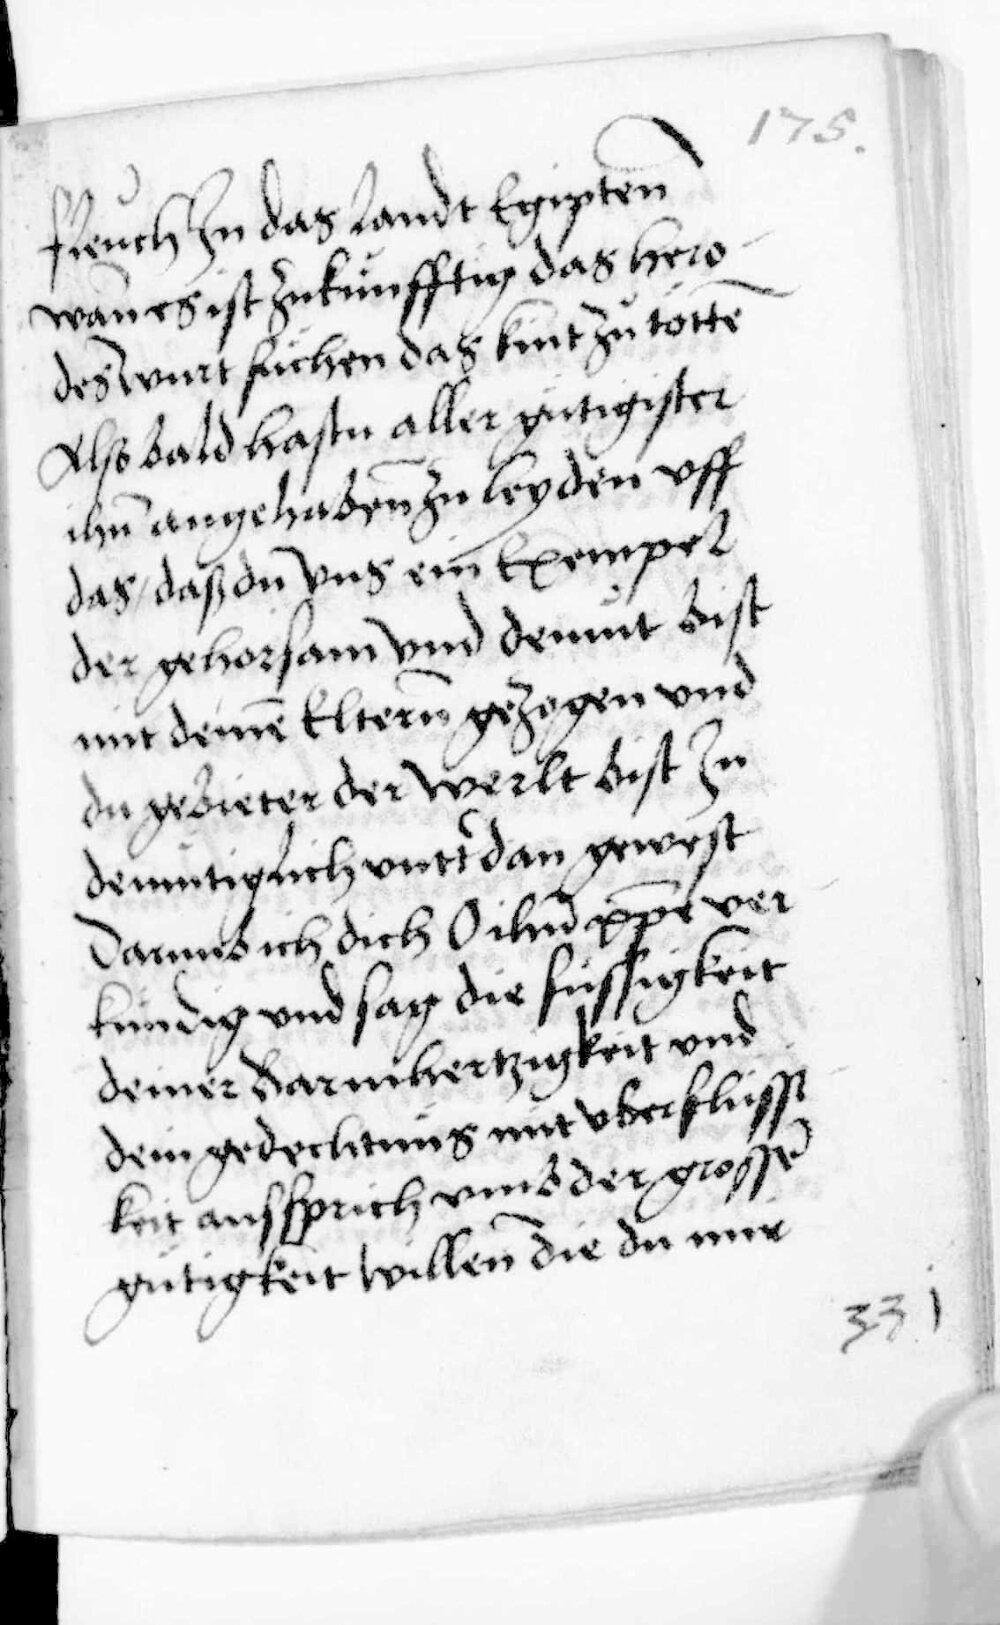 175.
fleuch In das landt Egiptenn
wan es ist zukunfftig das hero
des wurt suchen das kint zu totte
Also bald hastu aller gutigister
ihu angehabenn zu leyden vff
das / daß du vns ein Exempel
der gehorsam vnd demut bist
mit deine Elternn gezogen vnd
du gebieter der werlt bist In
demutiglich vntt dan gewest
Darumb ich dich O ihu xpe ver
kundig vnd sag die sussigkeit
deiner Barmhertzigkeit vnd
dein gedechtnus mit vberflussi
keit ausspprich vmb der grosse
gutigkeit willenn die du mir
331